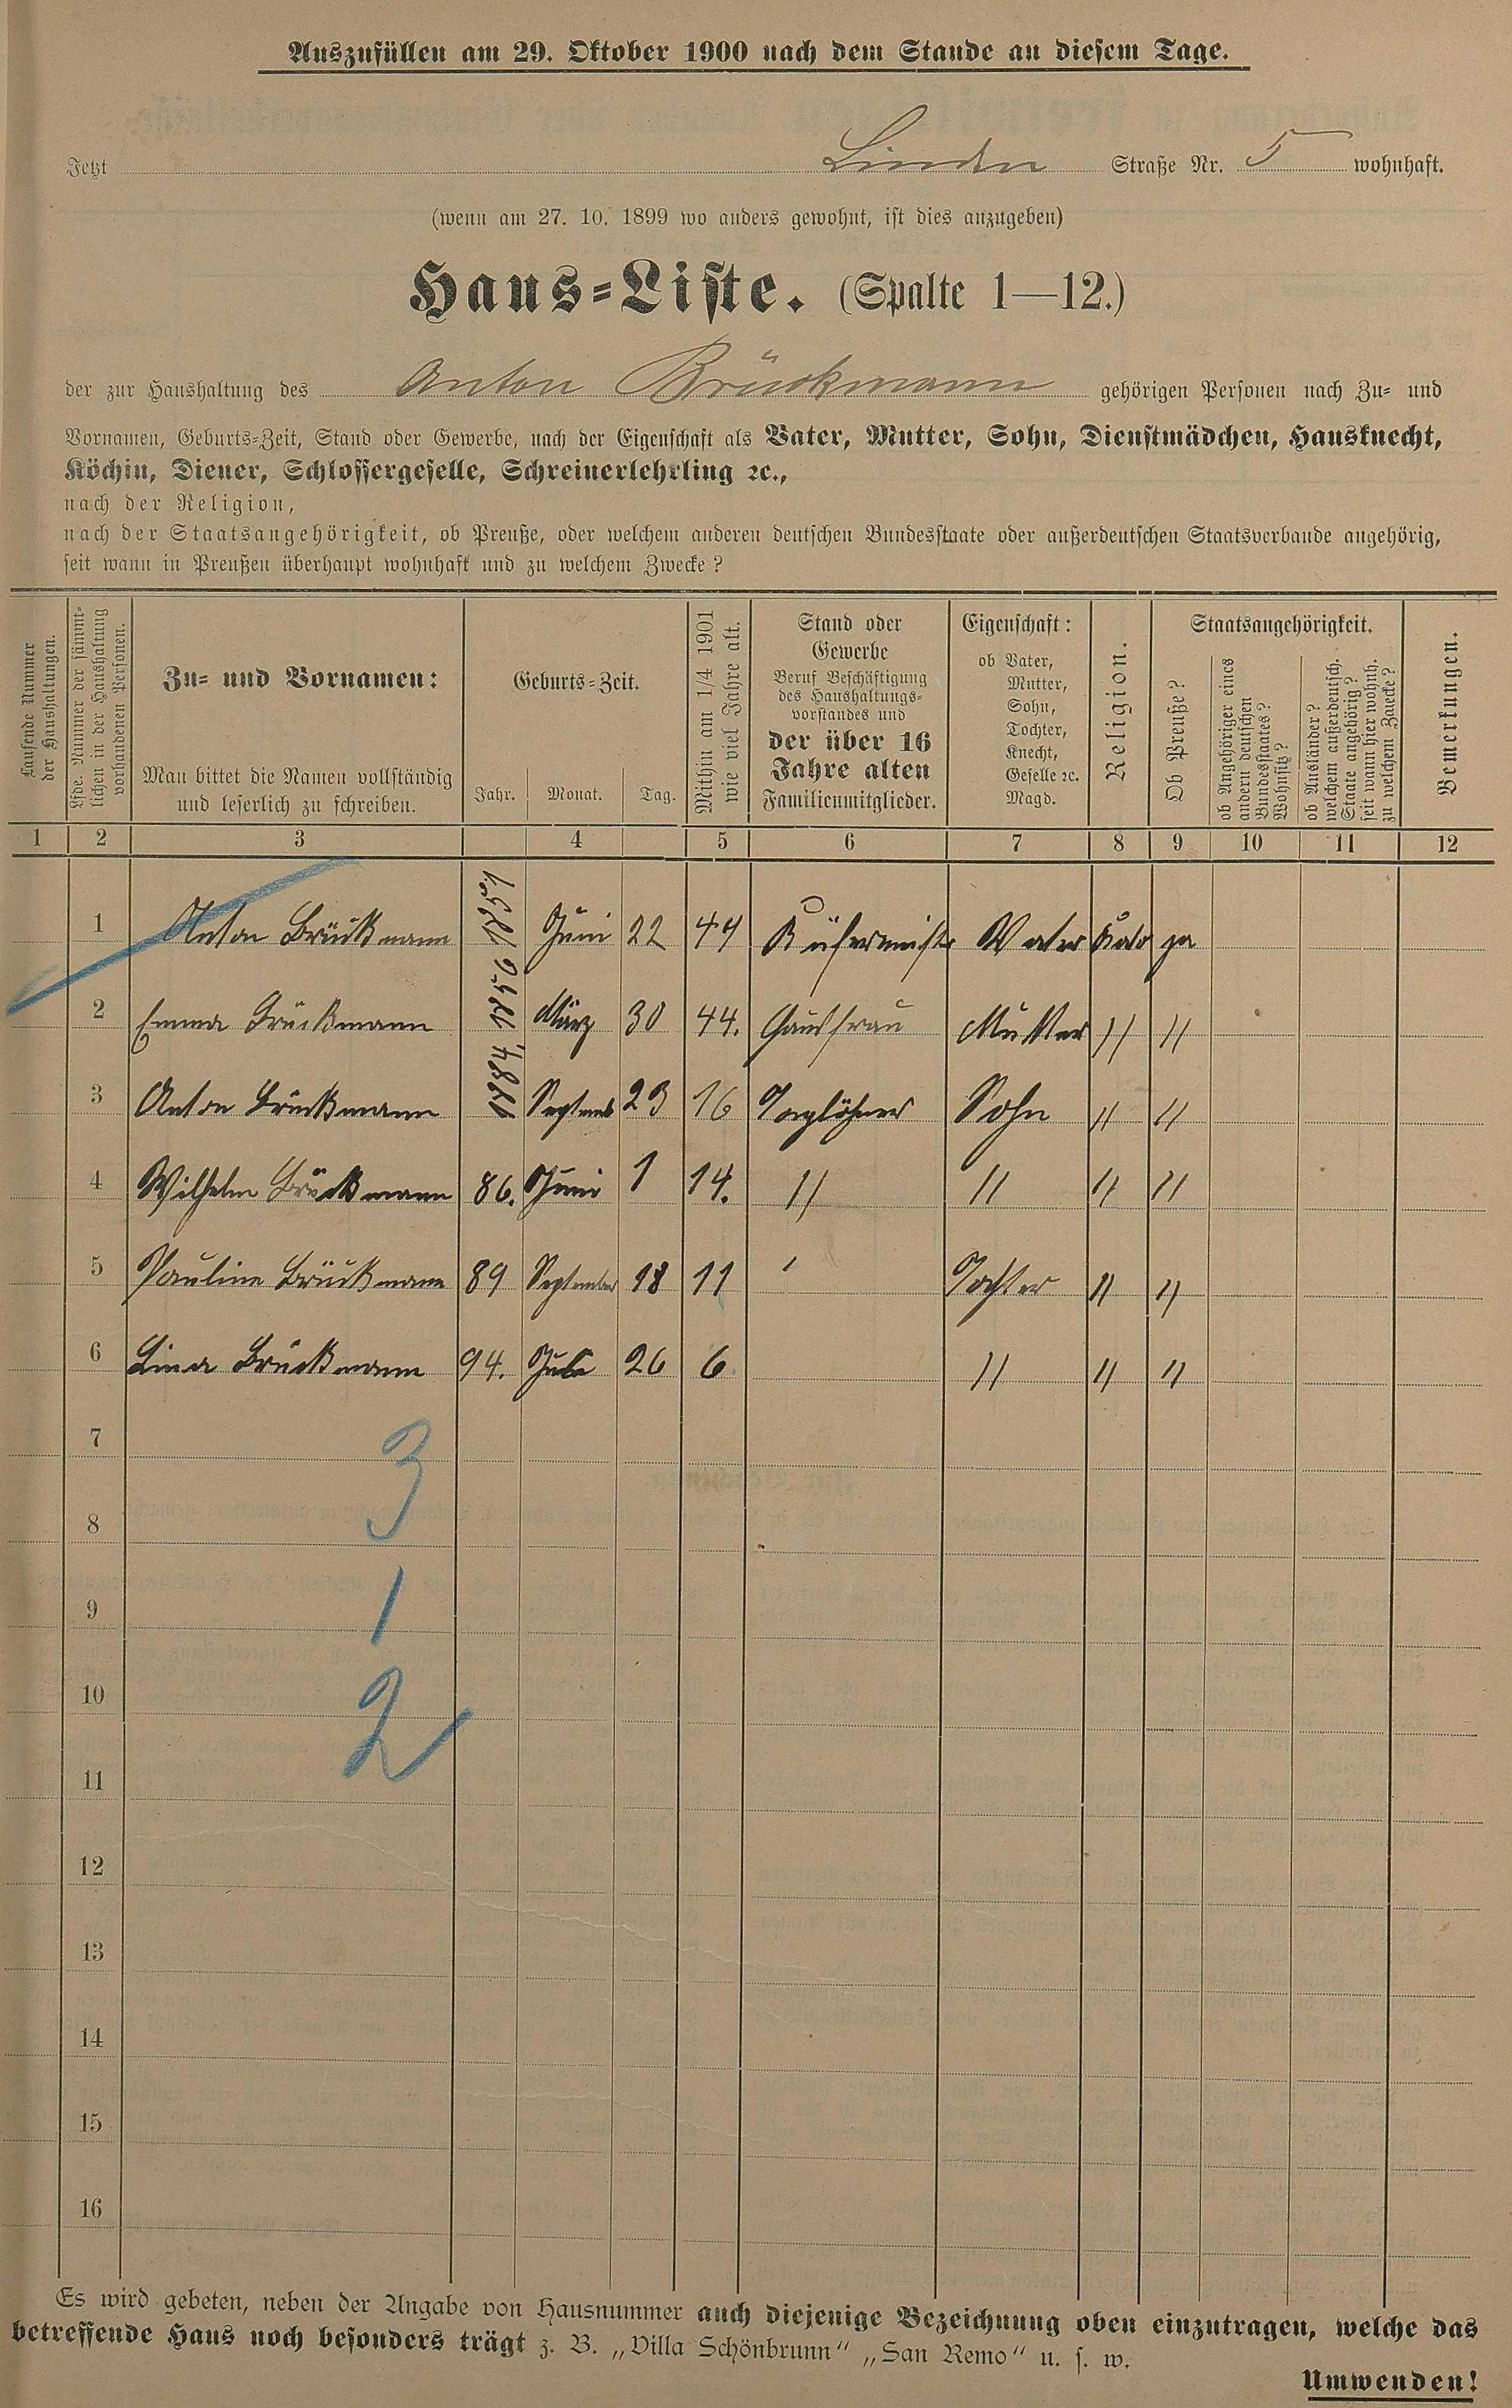 Auszufüllen am 29. Oktober 1900 nach dem Stande an diesem Tage.
Jetzt Linden Straße Nr. 5 wohnhaft.
(wenn am 27. 10. 1899 wo anders gewohnt, ist dies anzugeben)
Haus-Liste. (Spalte 1—12.)
der zur Haushaltung des Anton Brückmann gehörigen Personen nach Zu- und
Vornamen, Geburts-Zeit, Stand oder Gewerbe, nach der Eigenschaft als Vater, Mutter, Sohn, Dienstmädchen, Hausknecht,
Köchin, Diener, Schlossergeselle, Schreinerlehrling ꝛc.,
nach der Religion,
nach der Staatsangehörigkeit, ob Preuße, oder welchem anderen deutschen Bundesstaate oder außerdeutschen Staatsverbande angehörig,
seit wann in Preußen überhaupt wohnhaft und zu welchem Zwecke?
Laufende Nummer
der Haushaltungen.
Lfde. Nummer der sämmt-
lichen in der Haushaltung
vorhandenen Personen.
Zu- und Vornamen:
Man bittet die Namen vollständig
und leserlich zu schreiben.
Geburts-Zeit.
Jahr. Monat. Tag.
Mithin am 1/4 1901
wie viel Jahre alt.
Stand oder
Gewerbe
Beruf Beschäftigung
des Haushaltungs-
vorstandes und
der über 16
Jahre alten
Familienmitglieder.
Eigenschaft:
ob Vater,
Mutter,
Sohn,
Tochter,
Knecht,
Geselle ꝛc.
Magd.
Religion.
Staatsangehörigkeit.
Ob Preuße?
ob Angehöriger eines
andern deutschen
Bundesstaates?
Wohnsitz?
ob Ausländer?
welchem außerdeutsch.
Staate angehörig?
seit wann hier wohnh.
zu welchem Zwecke?
Bemerkungen.
1 2 3 4 5 6 7 8 9 10 11 12
1 Anton Brückmann 1851. Juni 22 49 Küfermeister Vater Kath ja
2 Emma Brückmann 1856 März 30 44. Hausfrau Mutter " "
3 Anton Brückmann 1884. Septemb 23 16 Taglöhner Sohn " "
4 Wilhelm Brückmann 86. Juni 1 14. " " " "
5 Pauline Brückmann 89 September 18 11 ' Tochter " "
6 Lina Brückmann 94. Juli 26 6 " " "
7
3
8
9
1
10
2
11
12
13
14
15
16
Es wird gebeten, neben der Angabe von Hausnummer auch diejenige Bezeichnung oben einzutragen, welche das
betreffende Haus noch besonders trägt z. B. „Villa Schönbrunn“ „San Remo“ u. s. w.
Umwenden!